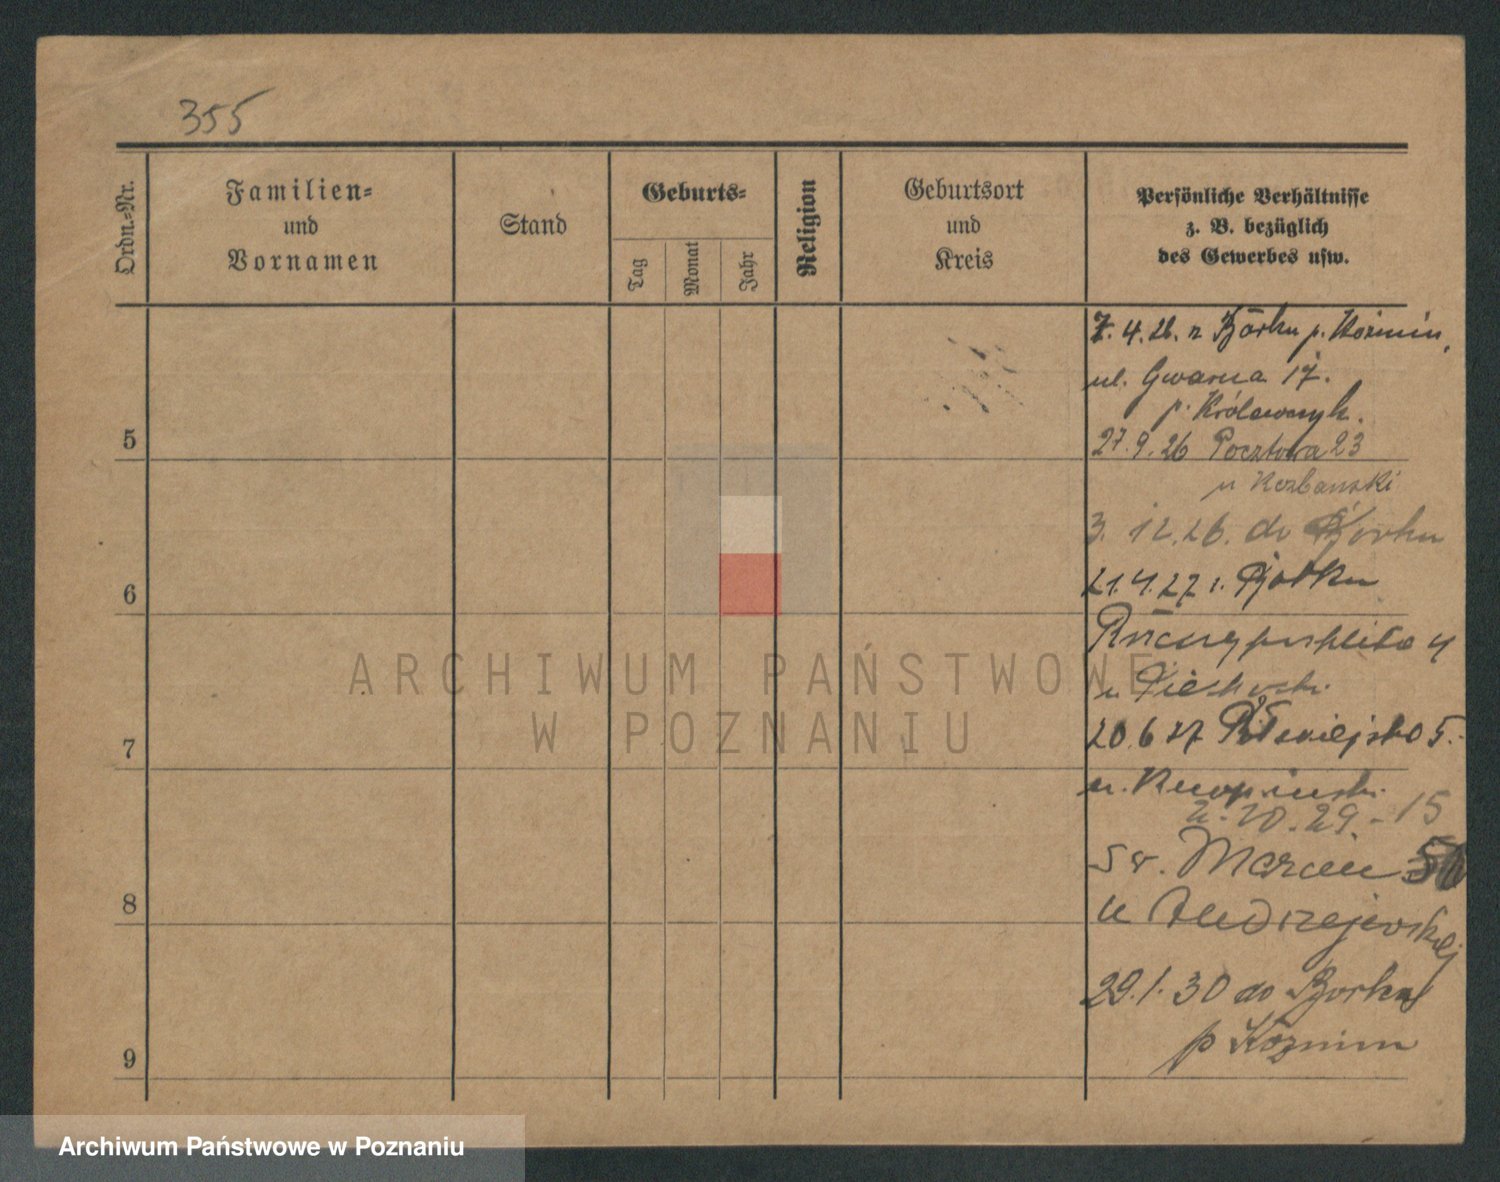 355
Ordn.-Nr.
Familien-
und
Vornamen
Stand
Geburts-
Tag
Monat
Jahr
Religion
Geburtsort
und
Kreis
Persönliche Verhältnisse
z. B. bezüglich
des Gewerbes usw.
7.4.26. z Borku p. Koźmin,
ul. Gwarna 17.
p. Królewczyk.
5
27.9.26 Pocztowa 23
u
3.12.26. do Borku
6
21.4.27 z. Borku
Rzeczypospolita 4
u
ARCHIWUM PAŃSTWOWE
W POZNANIU
20.6 27 Półwiejska 5.
7
u.
2.10.29. - 15
Św. Marcin 56
8
u Andrzejewskiej
29.1.30 do Borku
p Kozmin
9
Archiwum Państwowe w Poznaniu